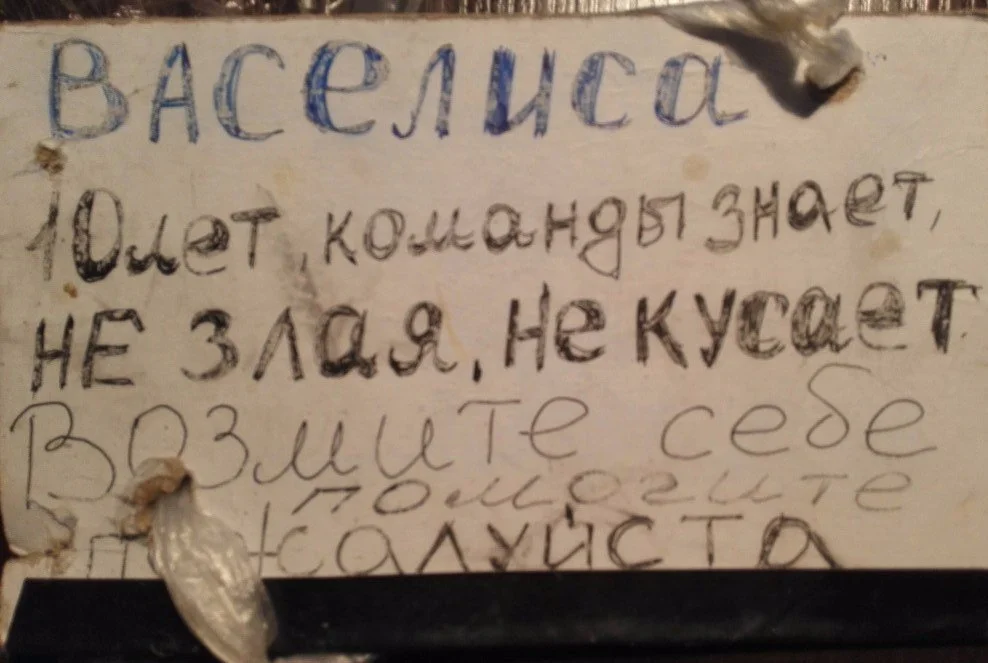 ВАСелиса
10лет, команды знает,
НЕ Злая, не кусает
Возмите себе
помогите
пожалуйста